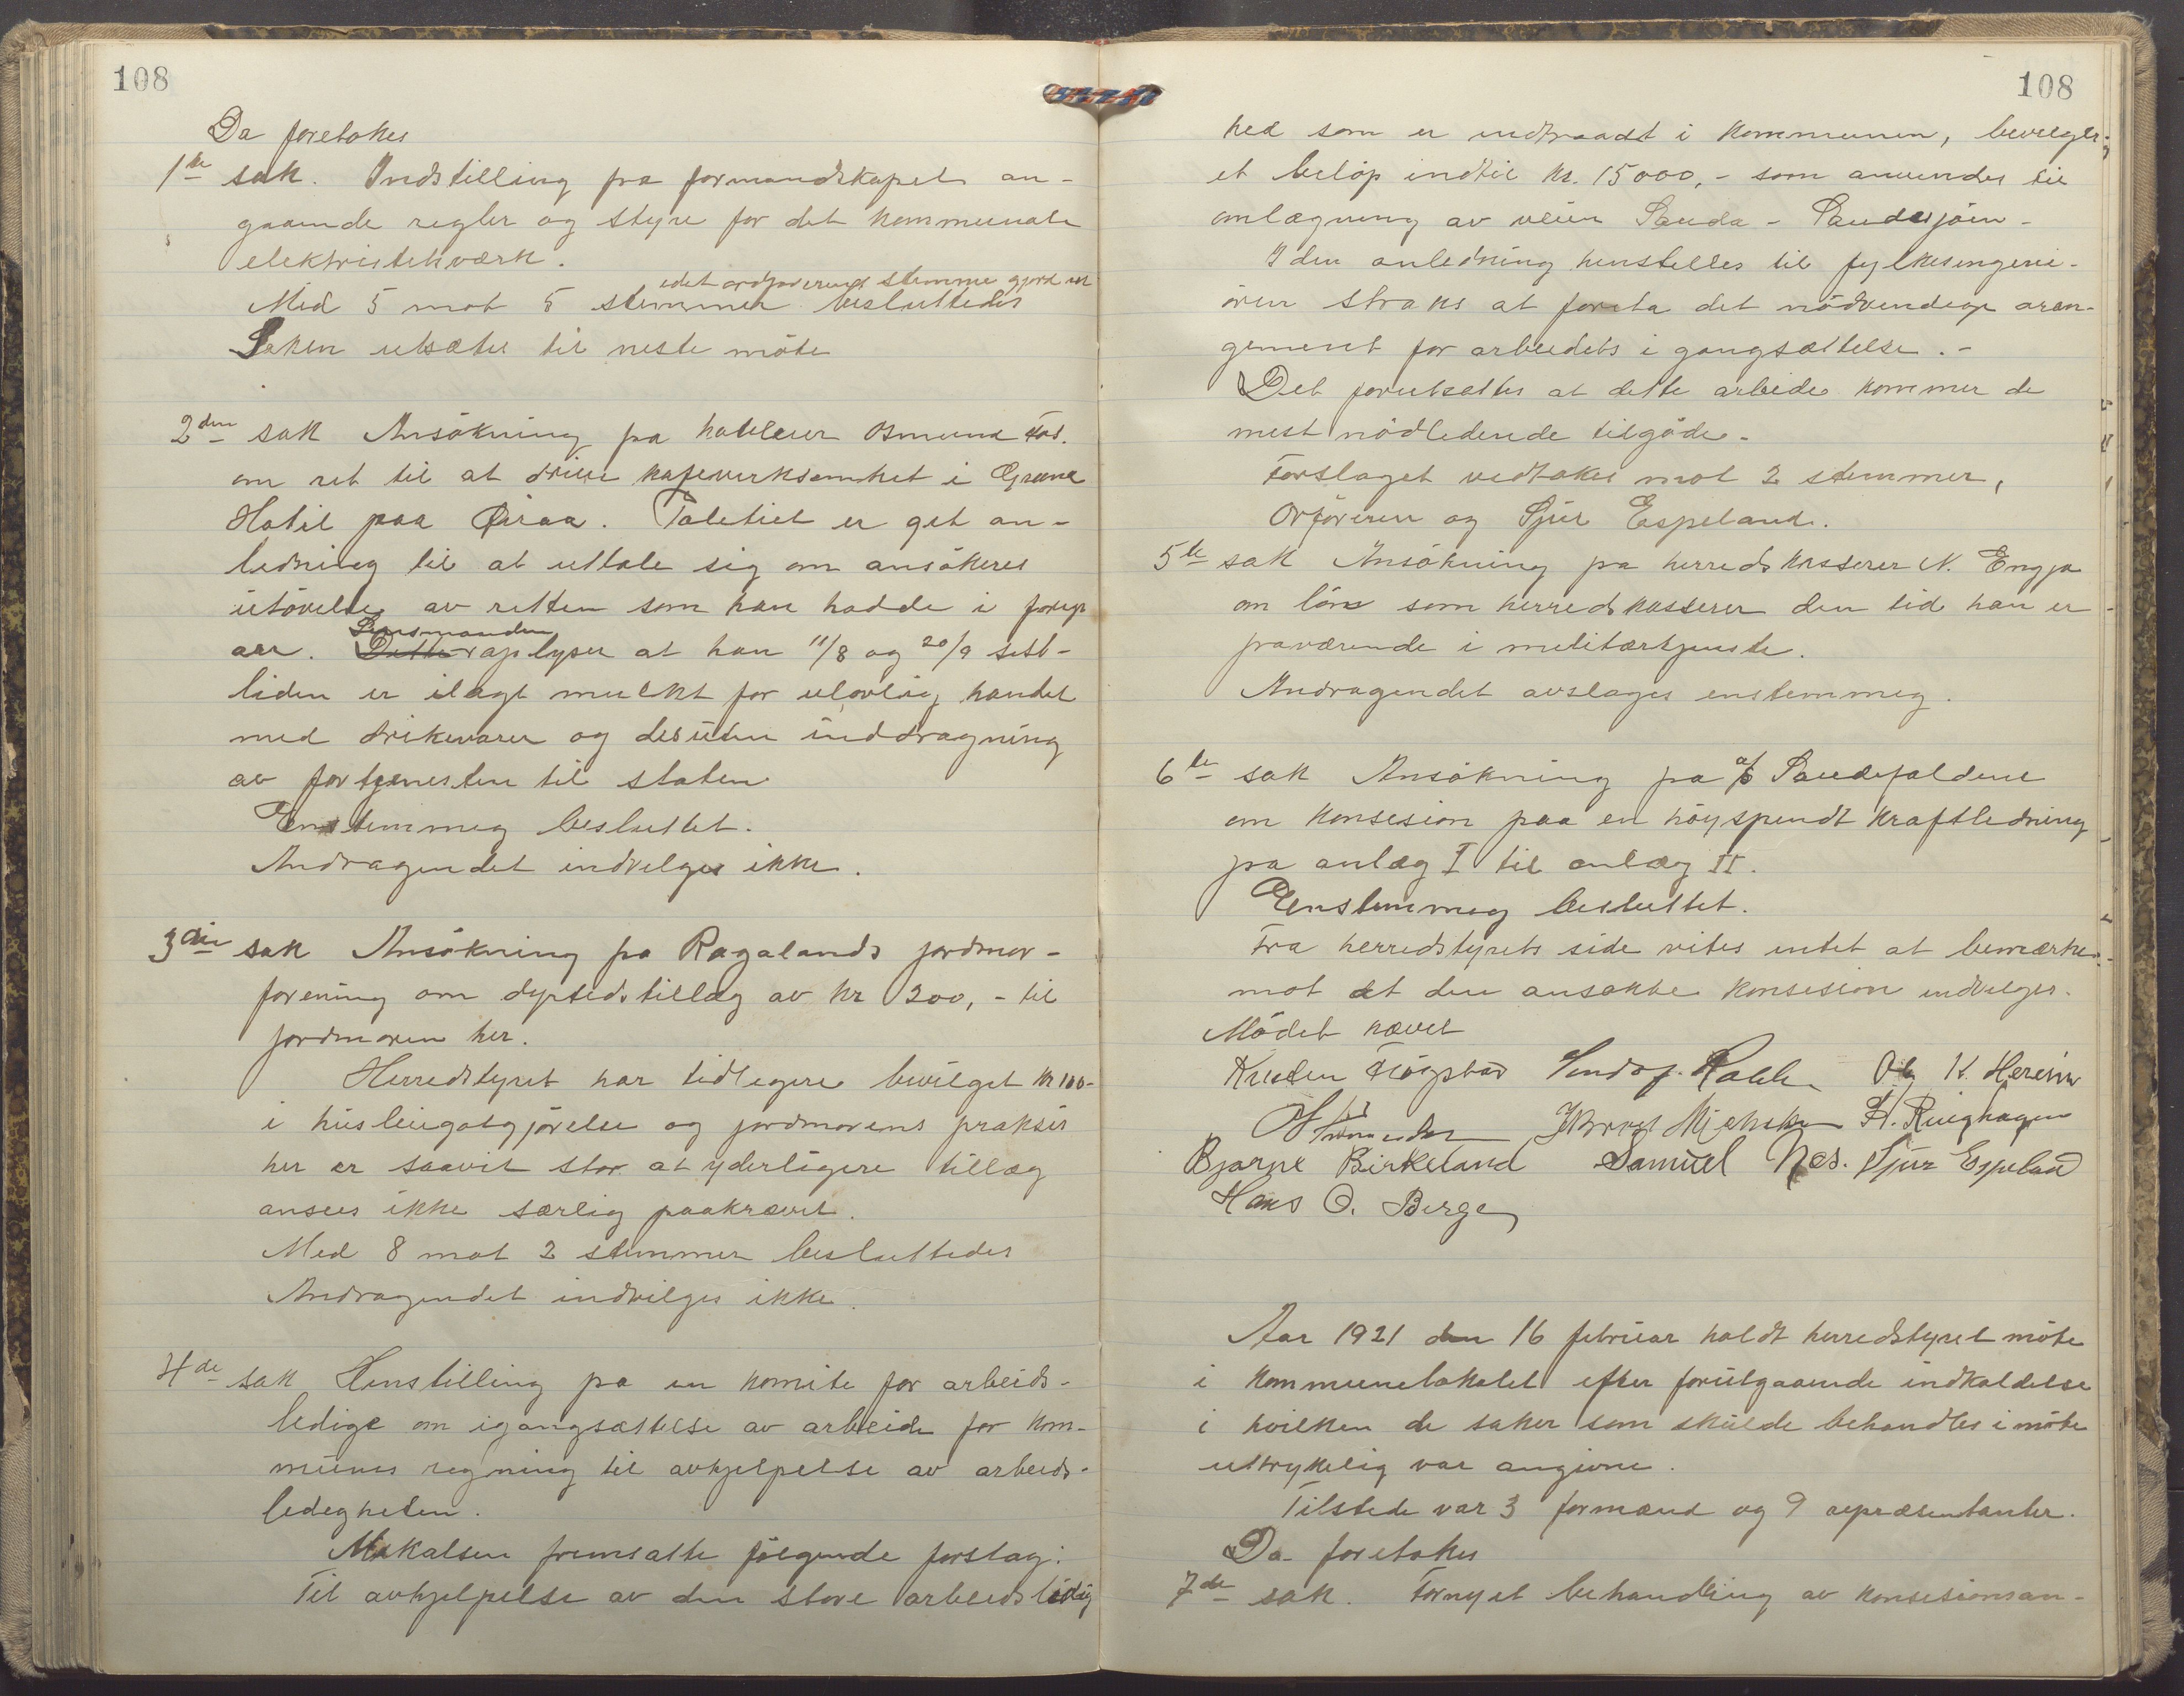 108
Da foretokes
1ste sak. Indstilling fra formandskapet an-
gaaende regler og styre for det kommunale
elektristetsværk.
idet ordførerens stemme gjord ut
Med 5 mot 5 stemmer besluttedes
Saken utsætes til neste møte
2den sak Ansøkning fra hoteleier Osmund Fos.
om ret til at drive kafevirksomhet i Grand
Hotel paa Øiraa. Politiet er get an-
ledning til at uttale sig om ansøkeres
utøvelse av retten som han hadde i forige
Lensmanden
aar. Dette oplyser at han 11/8 og 20/9 sist-
liden er ilagt mulkt for ulovlig handel
med drikevarer og desuten inddragning
av fortjenesten til staten
Enstemmeg besluttet.
Andragendet indvilges ikke.
3die sak Ansøkning fra Rogalands jordmor-
forening om dyrtidstillæg av kr 200,- til
jordmoren her.
Herredstyret har tidlegere bevilget kr 100-
i husleiegodtgjørelse og jordmorens praksis
her er saavit stor at yderligere tillæg
ansees ikke særlig paakrævet.
Med 8 mot 2 stemmer besluttedes
Andragendet indvilges ikke.
4de sak Henstilling fra en komite for arbeids-
ledige om igangsættelse av arbeide for kom-
munes regning til avhjelpelse av arbeids-
ledegheten.
Mikalsen fremsatte følgende forslag:
Til avhjelpelse av den store arbeidsledig
108
hed som er indtraadt i kommunen, bevilges
et beløp indtil kr. 15000,- som anvendes til
anlægning av veien Sauda - Saudasjøen-
I den anledning henstelles til fylkesingeni-
øren straks at foreta det nødvendige aran-
gement for arbeidets i gangsættelse.-
Det forutsættes at dette arbeide kommer de
mest nødledende tilgode.
Forslaget vedtokes mot 2 stemmer,
Orføreren og Sjur Espeland.
5te sak Ansøkning fra herredskasserer N. Engja
om løn som herredskasserer den tid han er
fraværende i militærtjeneste.
Andragendet avslages enstemmeg.
6te sak Ansøkning fra a/s Saudefaldene
om konsesion paa en høyspendt kraftledning
fra anlæg I til anlæg II.
Enstemmeg besluttet.
Fra herredstyrets side vites intet at bemærke
mot at den ansøkte konsesion indvilges.
Mødet hævet
Knuten Fløgstad Sendof. Rabbe Ole K. Hereim
J. Birger Mikalsen H. Ringhagen
Bjarne Birkeland Samuel Nes. Sjur Espeland
Hans O. Berge
Aar 1921 den 16 februar holdt herredstyret møte
i kommunelokalet efter forutgaaende indkaldelse
i hvilken de saker som skulde behandles i møte
uttrykelig var angivne.
Tilstede var 3 formænd og 9 repræsentanter.
Da foretokes
7de sak. Fornyet behandling av konsesionsan-